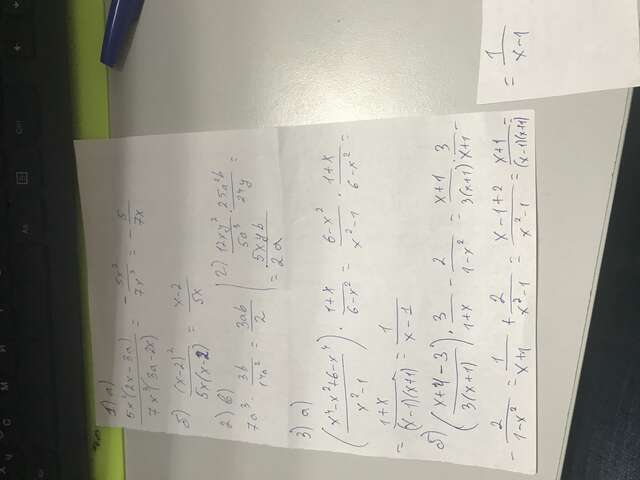 1) а)
5x²(2x-3a) / 7x³(3a-2x) = - 5x² / 7x³ = - 5 / 7x
б) (x-2)² / 5x(x-2) = x-2 / 5x
2) б)
7a³ · 3b / 14a² = 3ab / 2
2) 12xy² / 5a³ · 25a²b / 24y = 5xyb / 2a
3) а)
(x⁴-x²+6-x⁴ / x²-1) · 1+x / 6-x² = 6-x² / x²-1 · 1+x / 6-x² =
= 1+x / (x-1)(x+1) = 1 / x-1
б) (x+4-3 / 3(x+1)) · 3 / 1+x - 2 / 1-x² = x+1 / 3(x+1) · 3 / x+1 -
- 2 / 1-x² = 1 / x+1 + 2 / x²-1 = x-1+2 / x²-1 = x+1 / (x-1)(x+1) =
= 1 / x-1